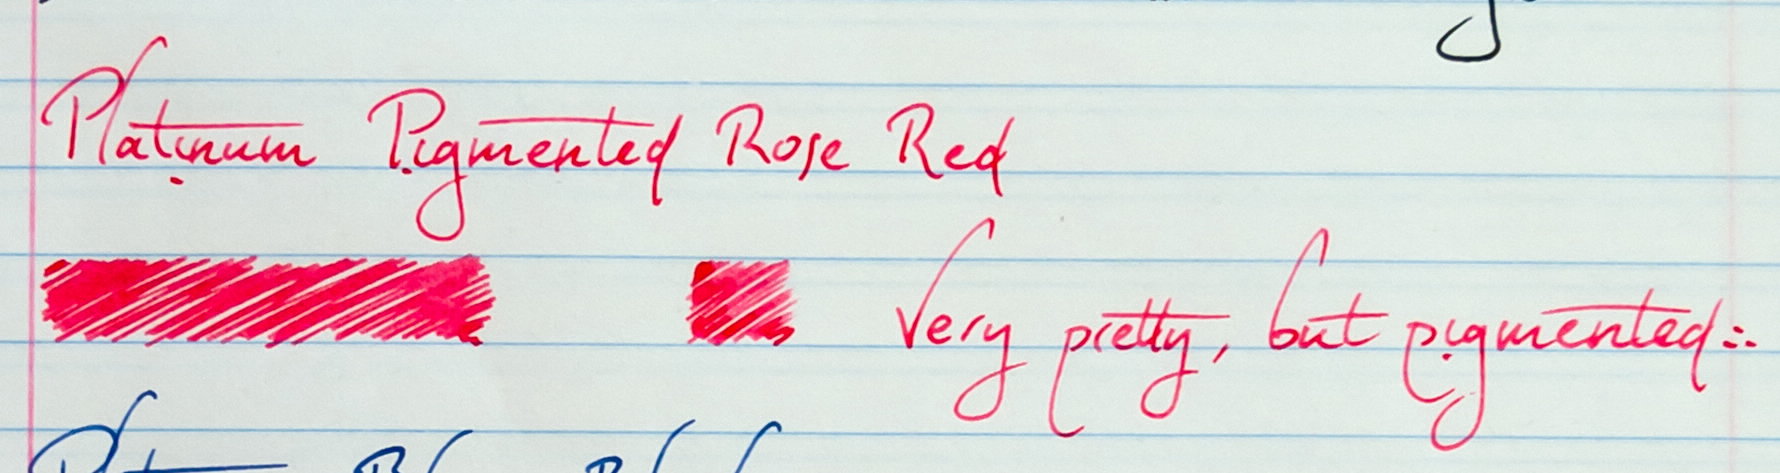 Platinum Pigmented Rose Red
Very pretty, but pigmented :.